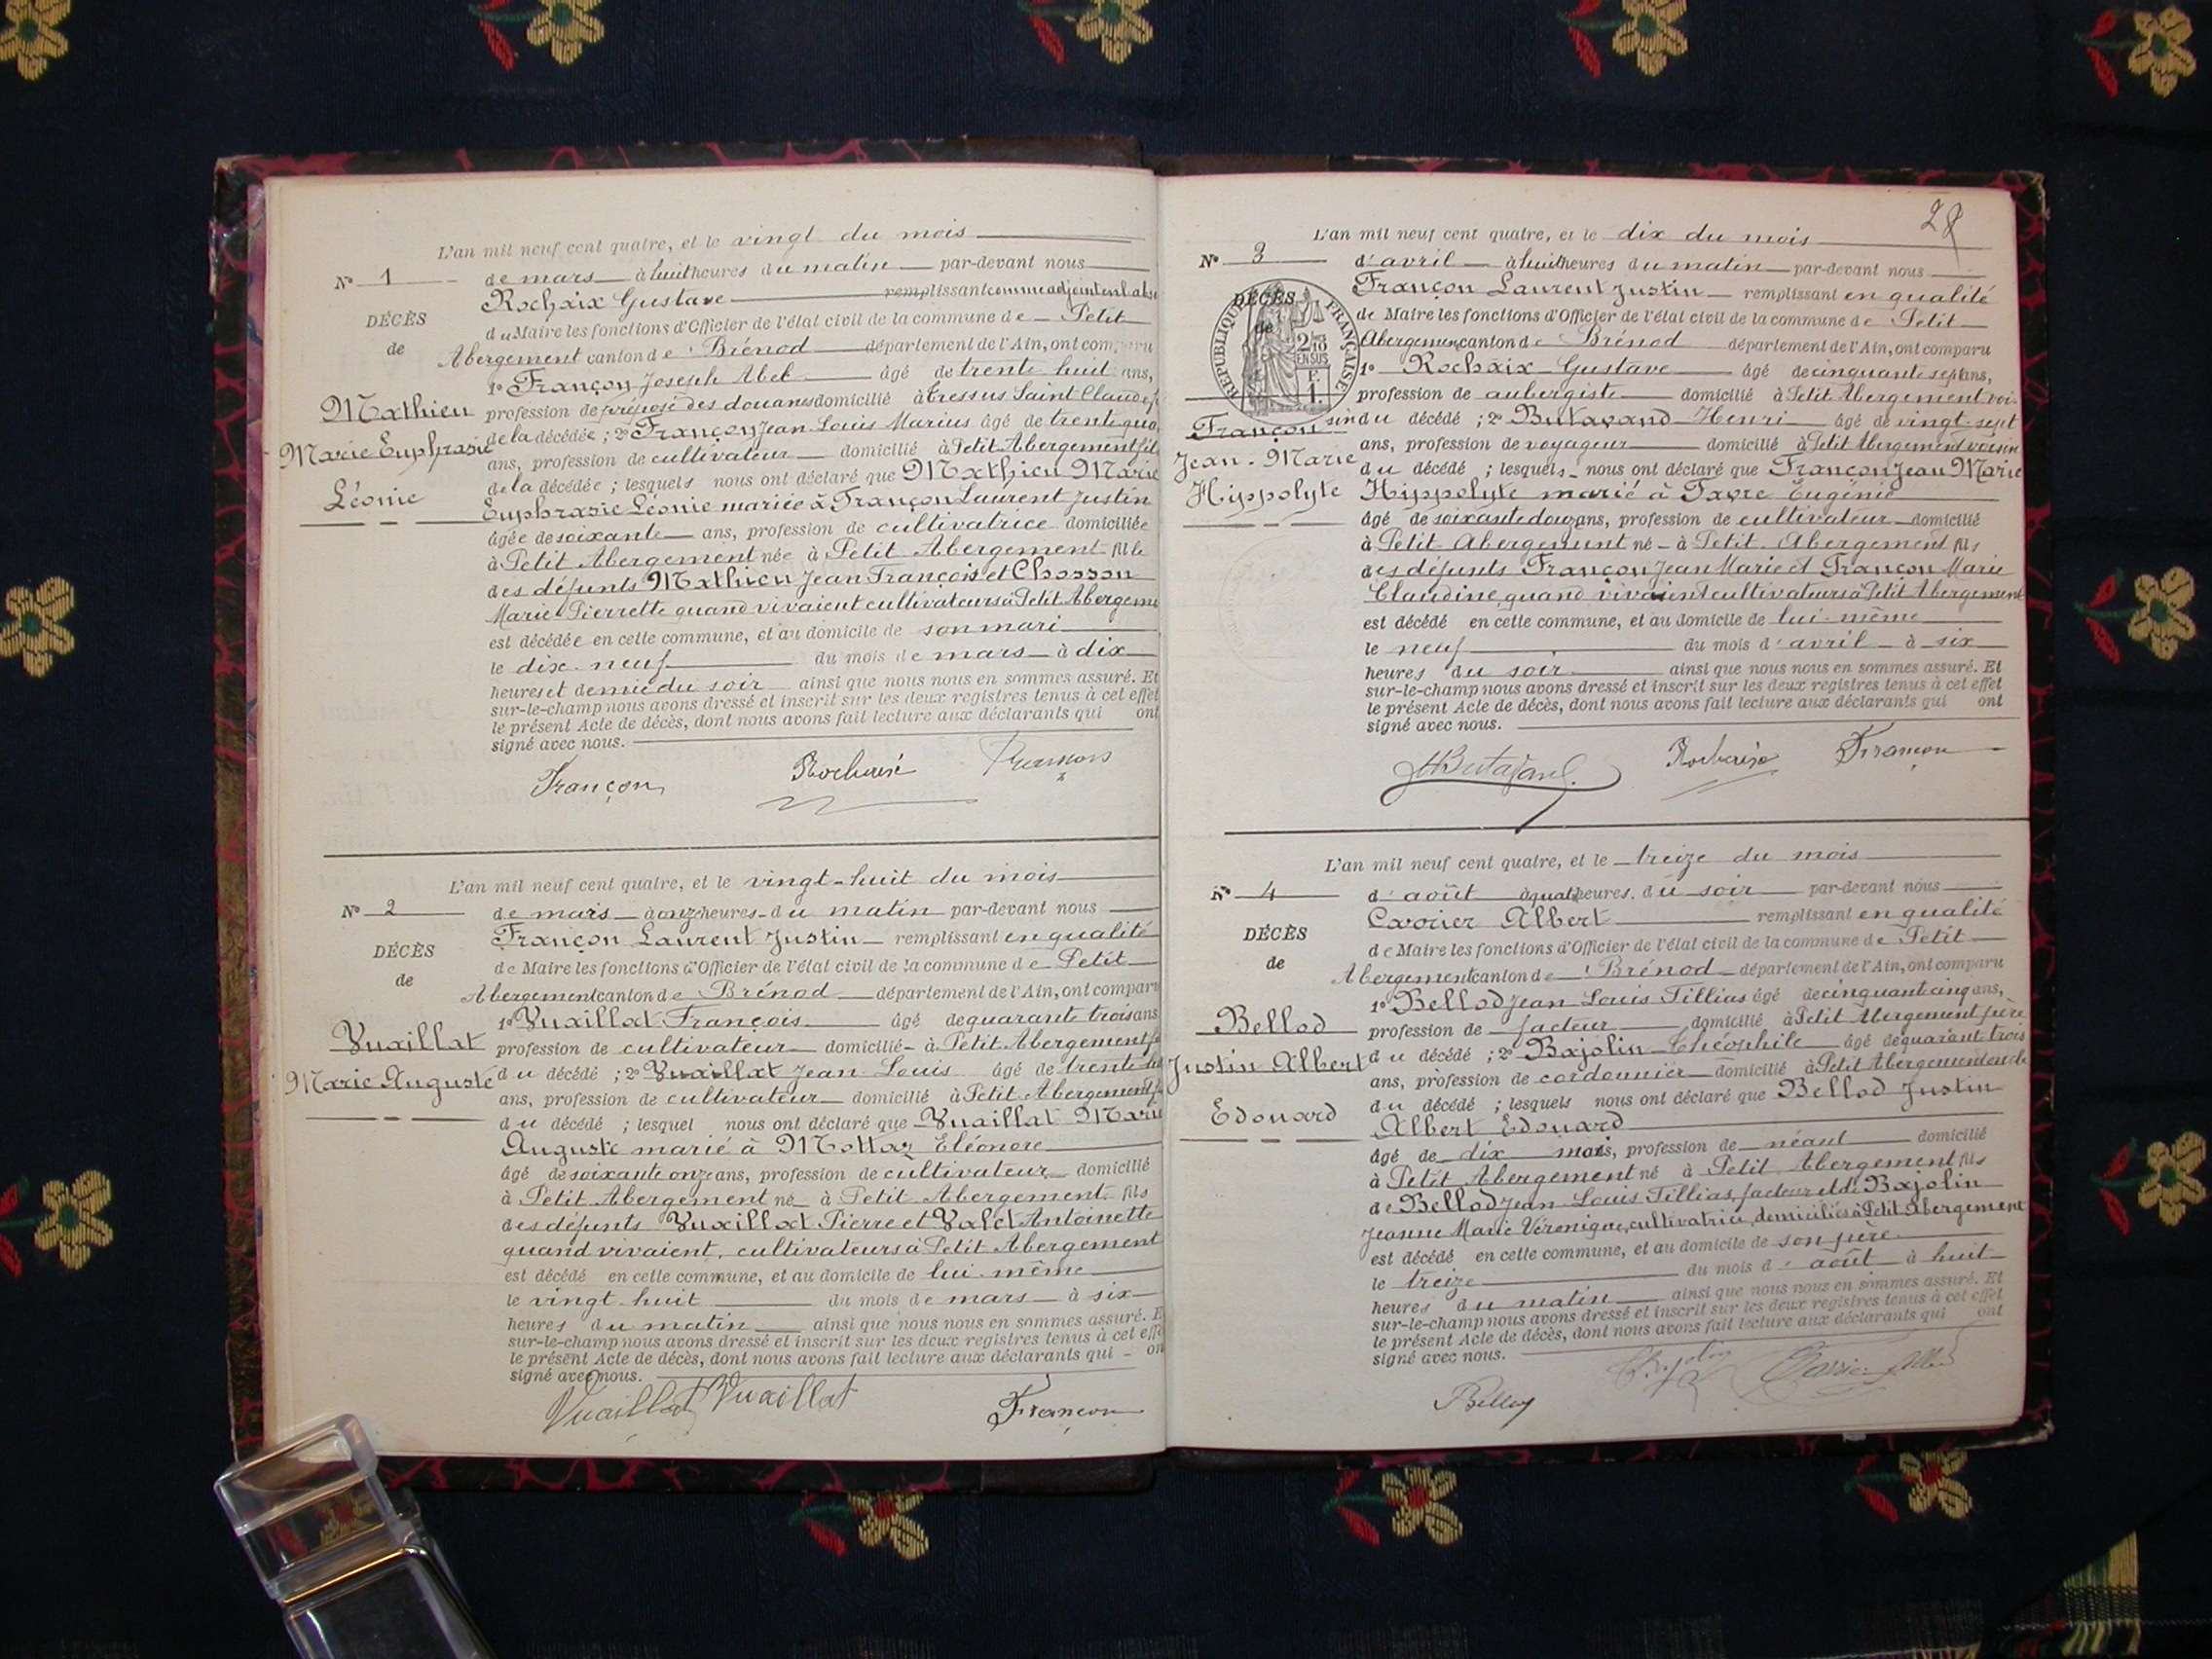 L'an mil neuf cent quatre, et le vingt du mois
N° 1
de mars à huit heures du matin par-devant nous
Rochaix Gustave remplissant comme adjoint en l'abs
DÉCÈS
du Maire les fonctions d'Officier de l'état civil de la commune de Petit
de
Abergement canton de Brénod département de l'Ain, ont comparu
1° Françon Joseph Abel âgé de trente huit ans,
Mathieu
profession de préposé des douanes domicilié à
de la décédée; 2° Françon Jean Louis Marius âgé de trente
Marie Euphrasie
ans, profession de cultivateur domicilié à Petit Abergement fils
de la décédée; lesquels nous ont déclaré que Mathieu Marie
Léonie
Euphrasie Léonie mariée à Françon Laurent Justin
âgée de soixante ans, profession de cultivatrice domiciliée
à Petit Abergement née à Petit Abergement fille
des défunts Mathieu Jean François et Chosson
Marie Pierrette quand vivaient cultivateurs à Petit Abergeme
est décédée en cette commune, et au domicile de son mari
le dix-neuf du mois de mars à dix
heures et demie du soir ainsi que nous nous en sommes assuré. Et
sur-le-champ nous avons dressé et inscrit sur les deux registres tenus à cet effet
le présent Acte de décès, dont nous avons fait lecture aux déclarants qui ont
signé avec nous.
Françon Rochaix Françon
L'an mil neuf cent quatre, et le vingt-huit du mois
N° 2
de mars à onze heures du matin par-devant nous
Françon Laurent Justin remplissant en qualité
DÉCÈS
de Maire les fonctions d'Officier de l'état civil de la commune de Petit
de
Abergement canton de Brénod département de l'Ain, ont compar
1° Vuaillat François âgé de quarante trois ans
Vuaillat
profession de cultivateur domicilié à Petit Abergement
Marie Auguste
du décédé; 2° Vuaillat Jean Louis âgé de trente
ans, profession de cultivateur domicilié à Petit Abergement
du décédé; lesquel nous ont déclaré que Vuaillat Marie
Auguste marié à Mottaz Eléonore
âgé de soixante onze ans, profession de cultivateur domicilié
à Petit Abergement né à Petit Abergement fils
des défunts Vuaillat Pierre et Valet Antoinette
quand vivaient, cultivateurs à Petit Abergement
est décédé en cette commune, et au domicile de lui-même
le vingt huit du mois de mars à six
heures du matin ainsi que nous nous en sommes assuré. E
sur-le-champ nous avons dressé et inscrit sur les deux registres tenus à cet effe
le présent Acte de décès, dont nous avons fait lecture aux déclarants qui on
signé avec nous.
Vuaillat Vuaillat Françon
28
L'an mil neuf cent quatre, et le dix du mois
N° 3
d'avril à huit heures du matin par-devant nous
Françon Laurent Justin remplissant en qualité
DÉCÈS
de Maire les fonctions d'Officier de l'état civil de la commune de Petit
de
RÉPUBLIQUE FRANÇAISE
2/10 EN SUS
F. 1.
Abergement canton de Brénod département de l'Ain, ont comparu
1° Rochaix Gustave âgé de cinquante sept ans,
profession de aubergiste domicilié à Petit Abergement voi-
Françon
sin du décédé; 2° Butavand Henri âgé de vingt-sept
Jean-Marie
ans, profession de voyageur domicilié à Petit Abergement voisin
du décédé; lesquels nous ont déclaré que Françon Jean Marie
Hippolyte
Hippolyte marié à Favre Eugénie
âgé de soixante douze ans, profession de cultivateur domicilié
à Petit Abergement né à Petit Abergement fils
des défunts Françon Jean Marie et Françon Marie
Claudine quand vivaient cultivateurs à Petit Abergement
est décédé en cette commune, et au domicile de lui-même
le neuf du mois d'avril à six
heures du soir ainsi que nous nous en sommes assuré. Et
sur-le-champ nous avons dressé et inscrit sur les deux registres tenus à cet effet
le présent Acte de décès, dont nous avons fait lecture aux déclarants qui ont
signé avec nous.
HButavand Rochaix Françon
L'an mil neuf cent quatre, et le treize du mois
N° 4
d'août à quatre heures du soir par-devant nous
Albert remplissant en qualité
DÉCÈS
de Maire les fonctions d'Officier de l'état civil de la commune de Petit
de
Abergement canton de Brénod département de l'Ain, ont comparu
1° Bellod Jean Louis Tillias âgé de cinquante cinq ans,
Bellod
profession de facteur domicilié à Petit Abergement père
Justin Albert
du décédé; 2° Bajolin Théophile âgé de quarante trois
ans, profession de cordonnier domicilié à Petit Abergement oncle
Edouard
du décédé; lesquels nous ont déclaré que Bellod Justin
Albert Edouard
âgé de dix mois, profession de néant domicilié
à Petit Abergement né à Petit Abergement fils
de Bellod Jean Louis Tillias, facteur et de Bajolin
Jeanne Marie Véronique, cultivatrice, domiciliés à Petit Abergement
est décédé en cette commune, et au domicile de son père
le treize du mois d'août à huit
heures du matin ainsi que nous nous en sommes assuré. Et
sur-le-champ nous avons dressé et inscrit sur les deux registres tenus à cet effet
le présent Acte de décès, dont nous avons fait lecture aux déclarants qui ont
signé avec nous.
Bellod